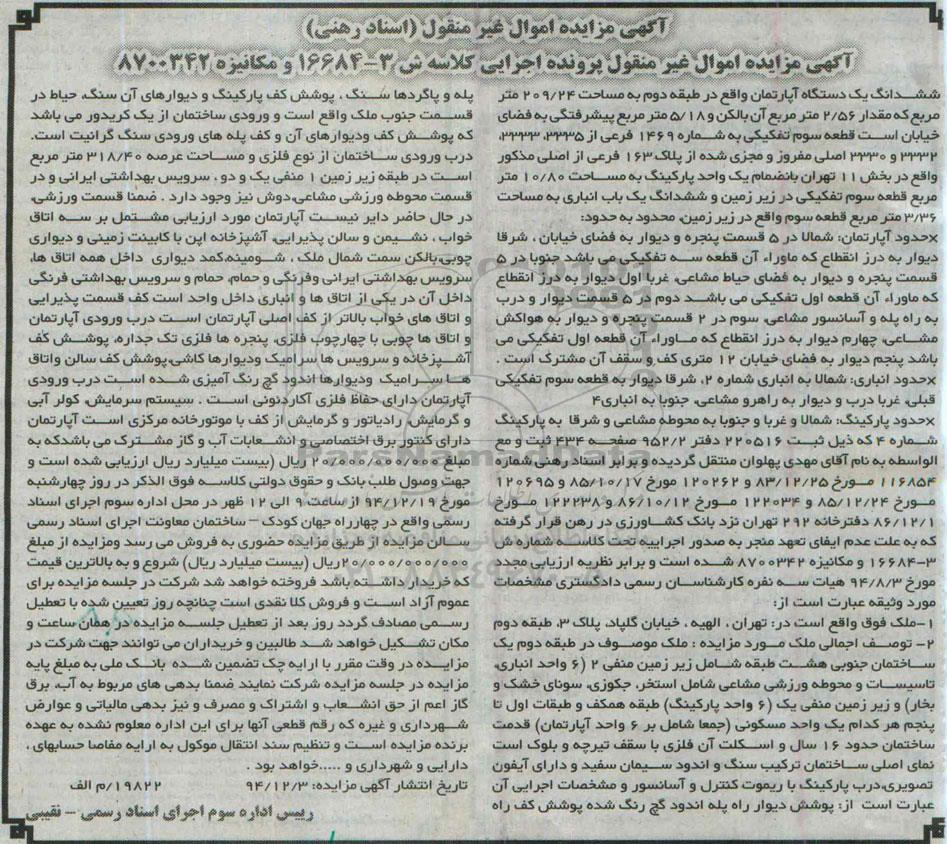 آگهی مزایده اموال غیر منقول (اسناد رهنی)
آگهی مزایده اموال غیر منقول پرونده اجرایی کلاسه ش ۳-۱۶۶۸۴ و مکانیزه ۸۷۰۰۳۴۲
ششدانگ یک دستگاه آپارتمان واقع در طبقه دوم به مساحت ۲۰۹/۲۴ متر
مربع که مقدار ۲/۵۶ متر مربع آن بالکن و ۵/۱۸ متر مربع پیشرفتگی به فضای
خیابان است قطعه سوم تفکیکی به شماره ۱۴۶۹ فرعی از ۳۳۳۵، ۳۳۳۳،
۳۳۳۲ و ۳۳۳۰ اصلی مفروز و مجزی شده از پلاک ۱۶۳ فرعی از اصلی مذکور
واقع در بخش ۱۱ تهران بانضمام یک واحد پارکینگ به مساحت ۱۰/۸۰ متر
مربع قطعه سوم تفکیکی در زیر زمین و ششدانگ یک باب انباری به مساحت
۳/۳۶ متر مربع قطعه سوم واقع در زیر زمین، محدود به حدود:
×حدود آپارتمان: شمالا در ۵ قسمت پنجره و دیوار به فضای خیابان ، شرقا
دیوار به درز انقطاع که ماوراء آن قطعه سه تفکیکی می باشد جنوبا در ۵
قسمت پنجره و دیوار به فضای حیاط مشاعی، غربا اول دیوار به درز انقطاع
که ماوراء آن قطعه اول تفکیکی می باشد دوم در ۵ قسمت دیوار و درب
به راه پله و آسانسور مشاعی، سوم در ۲ قسمت پنجره و دیوار به هواکش
مشاعی، چهارم دیوار به درز انقطاع که ماوراء آن قطعه اول تفکیکی می
باشد پنجم دیوار به فضای خیابان ۱۲ متری کف و سقف آن مشترک است .
×حدود انباری: شمالا به انباری شماره ۲، شرقا دیوار به قطعه سوم تفکیکی
قبلی، غربا درب و دیوار به راهرو مشاعی، جنوبا به انباری۴
×حدود پارکینگ: شمالا و غربا و جنوبا به محوطه مشاعی و شرقا به پارکینگ
شماره ۴ که ذیل ثبت ۲۲۰۵۱۶ دفتر ۹۵۲/۲ صفحه ۴۳۴ ثبت و مع
الواسطه به نام آقای مهدی پهلوان منتقل گردیده و برابر اسناد رهنی شماره
۱۱۶۸۵۴ مورخ ۸۳/۱۲/۲۵ و ۱۲۰۲۶۲ مورخ ۸۵/۱۰/۱۷ و ۱۲۰۶۹۵
مورخ ۸۵/۱۲/۲۴ و ۱۲۲۰۳۴ مورخ ۸۶/۱۰/۱۲ و ۱۲۲۲۳۸ مورخ
۸۶/۱۲/۱ دفترخانه ۲۹۲ تهران نزد بانک کشاورزی در رهن قرار گرفته
که به علت عدم ایفای تعهد منجر به صدور اجراییه تحت کلاسه شماره ش
۳-۱۶۶۸۴ و مکانیزه ۸۷۰۰۳۴۲ شده است و برابر نظریه ارزیابی مجدد
مورخ ۹۴/۸/۳ هیات سه نفره کارشناسان رسمی دادگستری مشخصات
مورد وثیقه عبارت است از:
۱-ملک فوق واقع است در: تهران ، الهیه ، خیابان گلپاد، پلاک ۳، طبقه دوم
۲- توصف اجمالی ملک مورد مزایده : ملک موصوف در طبقه دوم یک
ساختمان جنوبی هشت طبقه شامل زیر زمین منفی ۲ (۶ واحد انباری،
تاسیسات و محوطه ورزشی مشاعی شامل استخر، جکوزی، سونای خشک و
بخار) و زیر زمین منفی یک (۶ واحد پارکینگ) طبقه همکف و طبقات اول تا
پنجم هر کدام یک واحد مسکونی (جمعا شامل بر ۶ واحد آپارتمان) قدمت
ساختمان حدود ۱۶ سال و اسکلت آن فلزی با سقف تیرچه و بلوک است
نمای اصلی ساختمان ترکیب سنگ و اندود سیمان سفید و دارای آیفون
تصویری،درب پارکینگ با ریموت کنترل و آسانسور و مشخصات اجرایی آن
عبارت است از: پوشش دیوار راه پله اندود گچ رنگ شده پوشش کف راه
پله و پاگردها سنگ ، پوشش کف پارکینگ و دیوارهای آن سنگ، حیاط در
قسمت جنوب ملک واقع است و ورودی ساختمان از یک کریدور می باشد
که پوشش کف ودیوارهای آن و کف پله های ورودی سنگ گرانیت است.
درب ورودی ساختمان از نوع فلزی و مساحت عرصه ۳۱۸/۴۰ متر مربع
است در طبقه زیر زمین ۱ منفی یک و دو ، سرویس بهداشتی ایرانی و در
قسمت محوطه ورزشی مشاعی،دوش نیز وجود دارد . ضمنا قسمت ورزشی،
در حال حاضر دایر نیست آپارتمان مورد ارزیابی مشتمل بر سه اتاق
خواب ، نشیمن و سالن پذیرایی، آشپزخانه اپن با کابینت زمینی و دیواری
چوبی،بالکن سمت شمال ملک ، شومینه،کمد دیواری داخل همه اتاق ها،
سرویس بهداشتی ایرانی وفرنگی و حمام، حمام و سرویس بهداشتی فرنگی
داخل آن در یکی از اتاق ها و انباری داخل واحد است کف قسمت پذیرایی
و اتاق های خواب بالاتر از کف اصلی آپارتمان است درب ورودی آپارتمان
و اتاق ها چوبی با چهارچوب فلزی، پنجره ها فلزی تک جداره، پوشش کف
آشپزخانه و سرویس ها سرامیک ودیوارها کاشی،پوشش کف سالن واتاق
ها سرامیک ودیوارها اندود گچ رنگ آمیزی شده است درب ورودی
آپارتمان دارای حفاظ فلزی آکاردئونی است . سیستم سرمایش، کولر آبی
و گرمایش، رادیاتور و گرمایش از کف با موتورخانه مرکزی است آپارتمان
دارای کنتور برق اختصاصی و انشعابات آب و گاز مشترک می باشدکه به
مبلغ ۲۰/۰۰۰/۰۰۰/۰۰۰ ریال (بیست میلیارد ریال ارزیابی شده است و
جهت وصول طلب بانک و حقوق دولتی کلاسه فوق الذکر در روز چهارشنبه
مورخ ۹۴/۱۲/۱۹ از ساعت ۹ الی ۱۲ ظهر در محل اداره سوم اجرای اسناد
رسمی واقع در چهارراه جهان کودک – ساختمان معاونت اجرای اسناد رسمی
سالن مزایده از طریق مزایده حضوری به فروش می رسد ومزایده از مبلغ
۲۰/۰۰۰/۰۰۰/۰۰۰ریال (بیست میلیارد ریال) شروع و به بالاترین قیمت
که خریدار داشته باشد فروخته خواهد شد شرکت در جلسه مزایده برای
عموم آزاد است و فروش کلا نقدی است چنانچه روز تعیین شده با تعطیل
رسمی مصادف گردد روز بعد از تعطیل جلسه مزایده در همان ساعت و
مکان تشکیل خواهد شد طالبین و خریداران می توانند جهت شرکت در
مزایده در وقت مقرر با ارایه چک تضمین شده بانک ملی به مبلغ پایه
مزایده در جلسه مزایده شرکت نمایند ضمنا بدهی های مربوط به آب، برق
گاز اعم از حق انشعاب و اشتراک و مصرف و نیز بدهی مالیاتی و عوارض
شهرداری و غیره که رقم قطعی آنها برای این اداره معلوم نشده به عهده
برنده مزایده است و تنظیم سند انتقال موکول به ارایه مفاصا حسابهای ،
دارایی و شهرداری و .....خواهد بود .
تاریخ انتشار آگهی مزایده: ۹۴/۱۲/۳ ۱۹۸۲۲/م الف
رییس اداره سوم اجرای اسناد رسمی – نقیبی
ParsNamadData